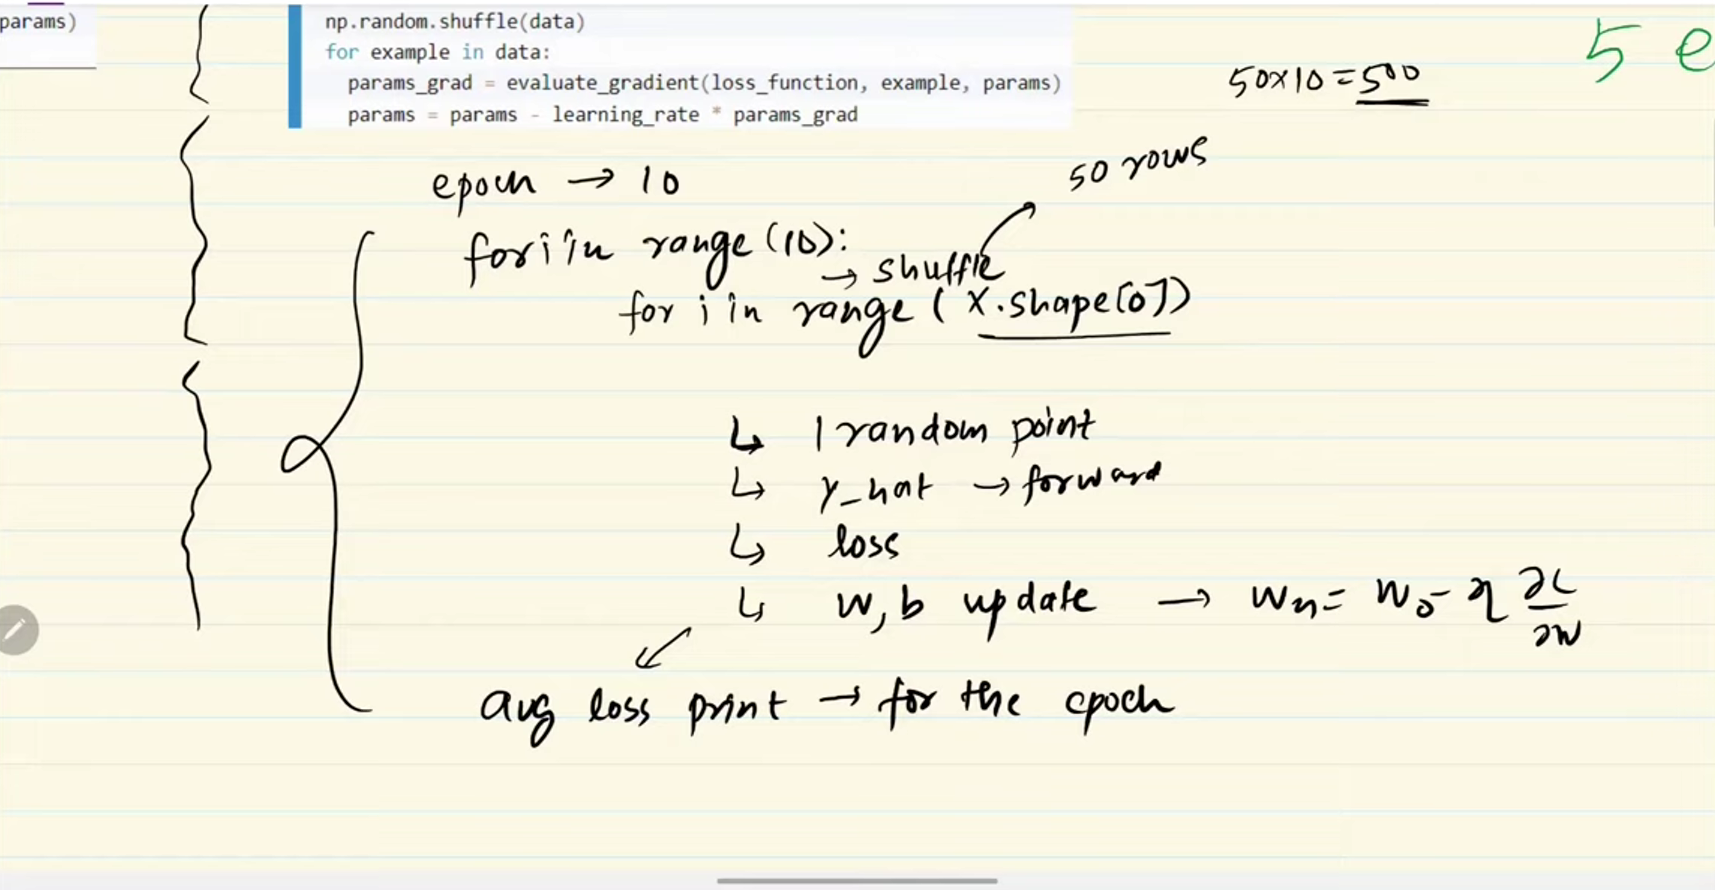 params)
np.random.shuffle(data)
for example in data:
params_grad = evaluate_gradient(loss_function, example, params)
params = params - learning_rate * params_grad
50x10 = 500
5 e
50 rows
epoch → 10
for i in range (10):
→ shuffle
for i in range ( X.shape[0])
↳ 1 random point
↳ Y_hat → forward
↳ loss
↳ W, b update → Wn = Wo - η ∂L/∂W
avg loss print → for the epoch